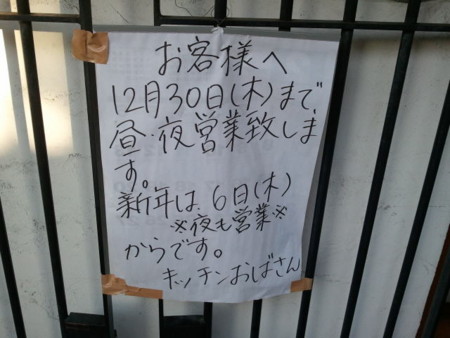 お客様へ
12月30日(木)まで、
昼・夜営業致しま
す。
新年は、6日(木)
※夜も営業※
からです。
キッチンおばさん